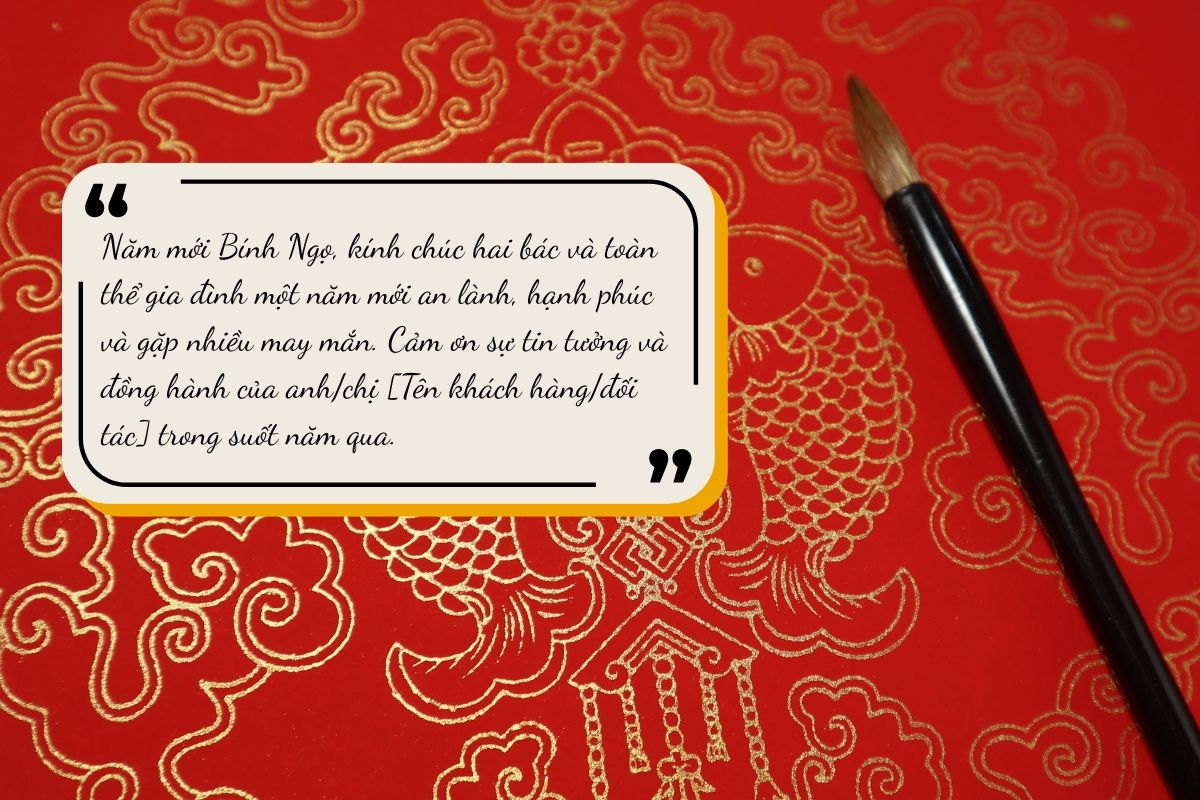 Năm mới Bính Ngọ, kính chúc hai bác và toàn
thể gia đình một năm mới an lành, hạnh phúc
và gặp nhiều may mắn. Cảm ơn sự tin tưởng và
đồng hành của anh/chị [Tên khách hàng/đối
tác] trong suốt năm qua.